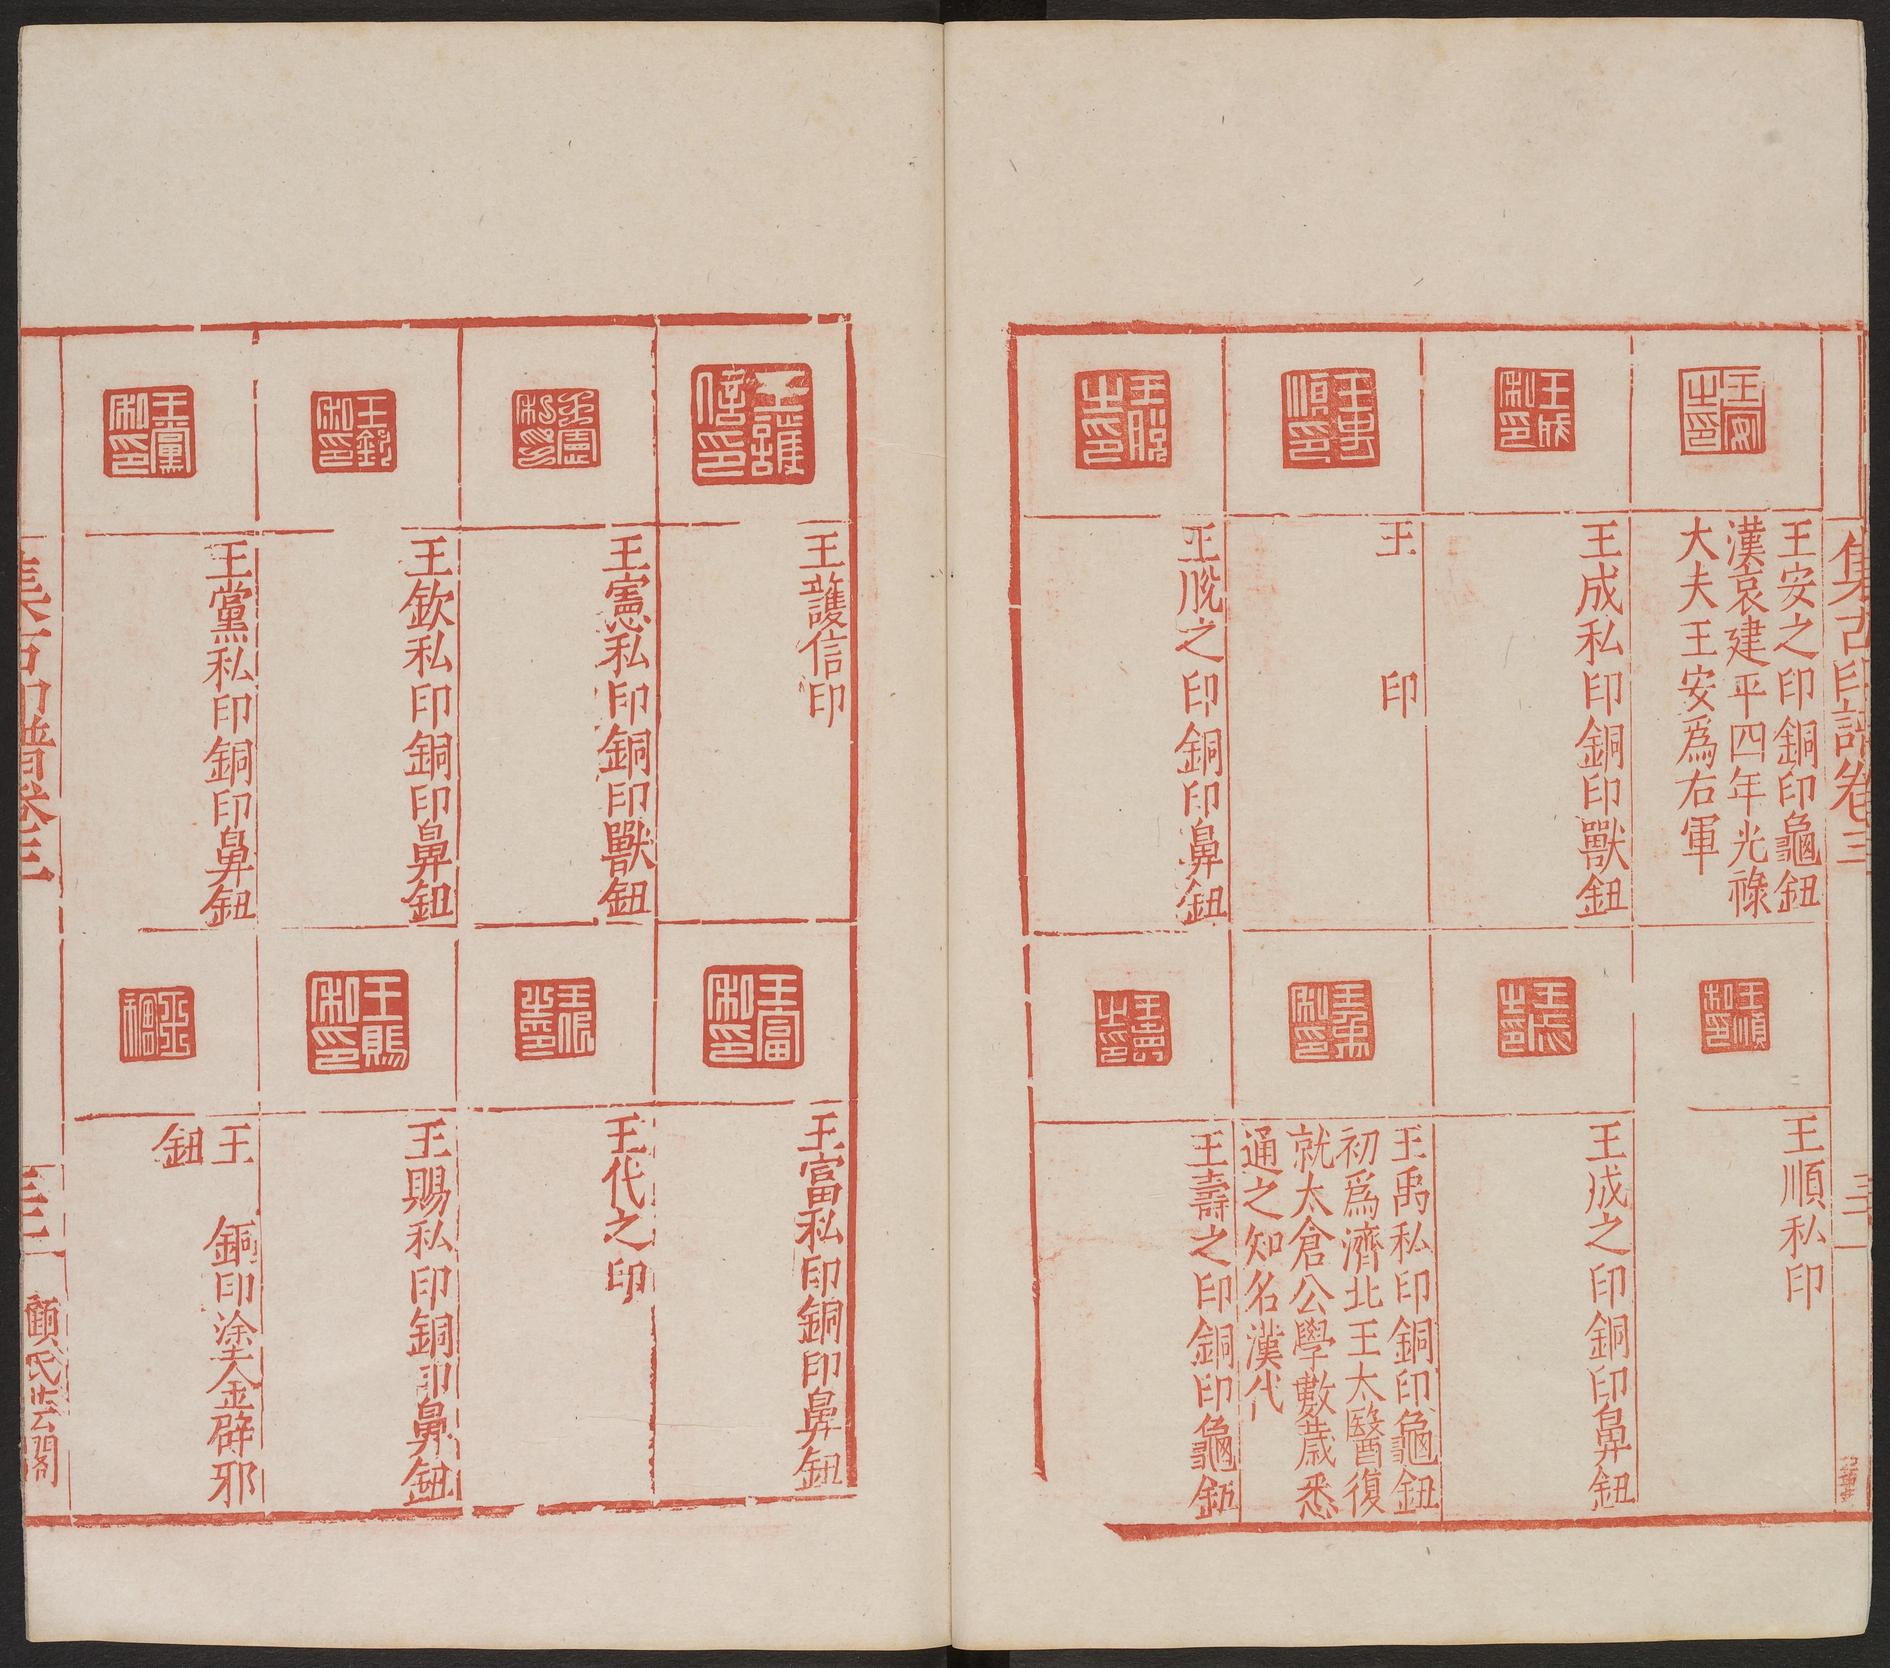 集古印譜卷三
王安之印銅印龜鈕
漢哀建平四年光祿
大夫王安爲右軍
王成私印銅印獸鈕
王 印
王脫之印銅印鼻鈕
王順私印
王成之印銅印鼻鈕
王禹私印銅印龜鈕
初爲濟北王太醫復
就太倉公學數歲悉
通之知名漢代
王壽之印銅印龜鈕
王護信印
王憲私印銅印獸鈕
王欽私印銅印鼻鈕
王黨私印銅印鼻鈕
王富私印銅印鼻鈕
王代之印
王賜私印銅印鼻鈕
王 銅印塗金辟邪
鈕
集古印譜卷三
顧氏芸閣